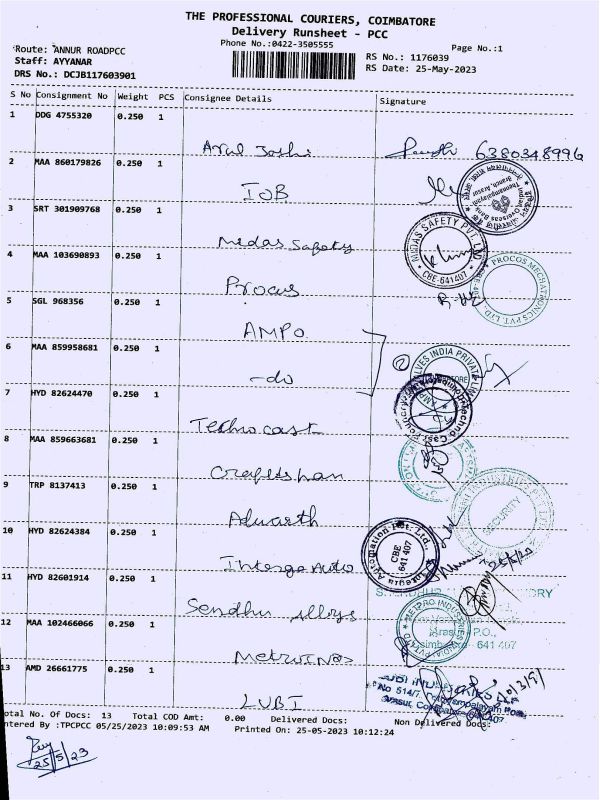 THE PROFESSIONAL COURIERS, COIMBATORE
Delivery Runsheet - PCC
Phone No.:0422-3505555
Page No.:1
Route: ANNUR ROADPCC
Staff: AYYANAR
DRS No.: DCJB117603901
RS No.: 1176039
RS Date: 25-May-2023
S No Consignment No Weight PCS Consignee Details Signature
1 DDG 4755320 0.250 1
Arul Joshi 6380348996
2 MAA 860179826 0.250 1
IOB
3 SRT 301909768 0.250 1
Midas Safety
MIDAS SAFETY PVT. LTD
CBE-641407
4 MAA 103690893 0.250 1
Procus
PROCOS MECHATRONICS PVT. LTD.
5 SGL 968356 0.250 1
AMPO
6 MAA 859958681 0.250 1
-do
7 HYD 82624470 0.250 1
Techno cast
8 MAA 859663681 0.250 1
Craftsman
9 TRP 8137413 0.250 1
Adwarth
SECURITY
10 HYD 82624384 0.250 1
Intergo Auto
Automation Pvt. Ltd.,
CBE
641 407
11 HYD 82601914 0.250 1
Sendhur alloys
12 MAA 102466066 0.250 1
METPRO INDUSTRIES
P.O.,
641 407
13 AMD 26661775 0.250 1
LUBI
No 514/7
otal No. Of Docs: 13 Total COD Amt: 0.00 Delivered Docs: Non Delivered Docs:
ntered By :TPCPCC 05/25/2023 10:09:53 AM Printed On: 25-05-2023 10:12:24
25/5/23